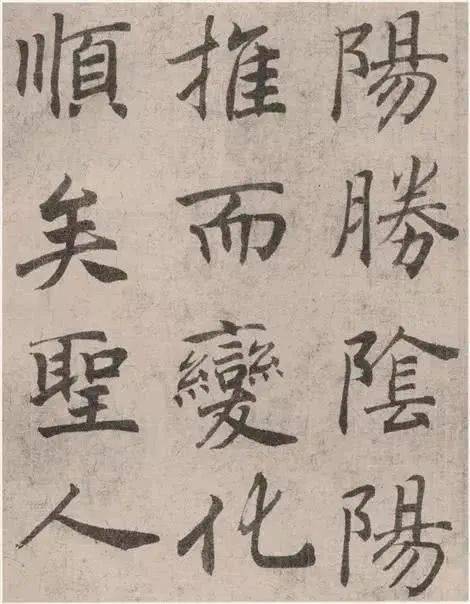 陽勝陰陽
推而變化
順矣聖人